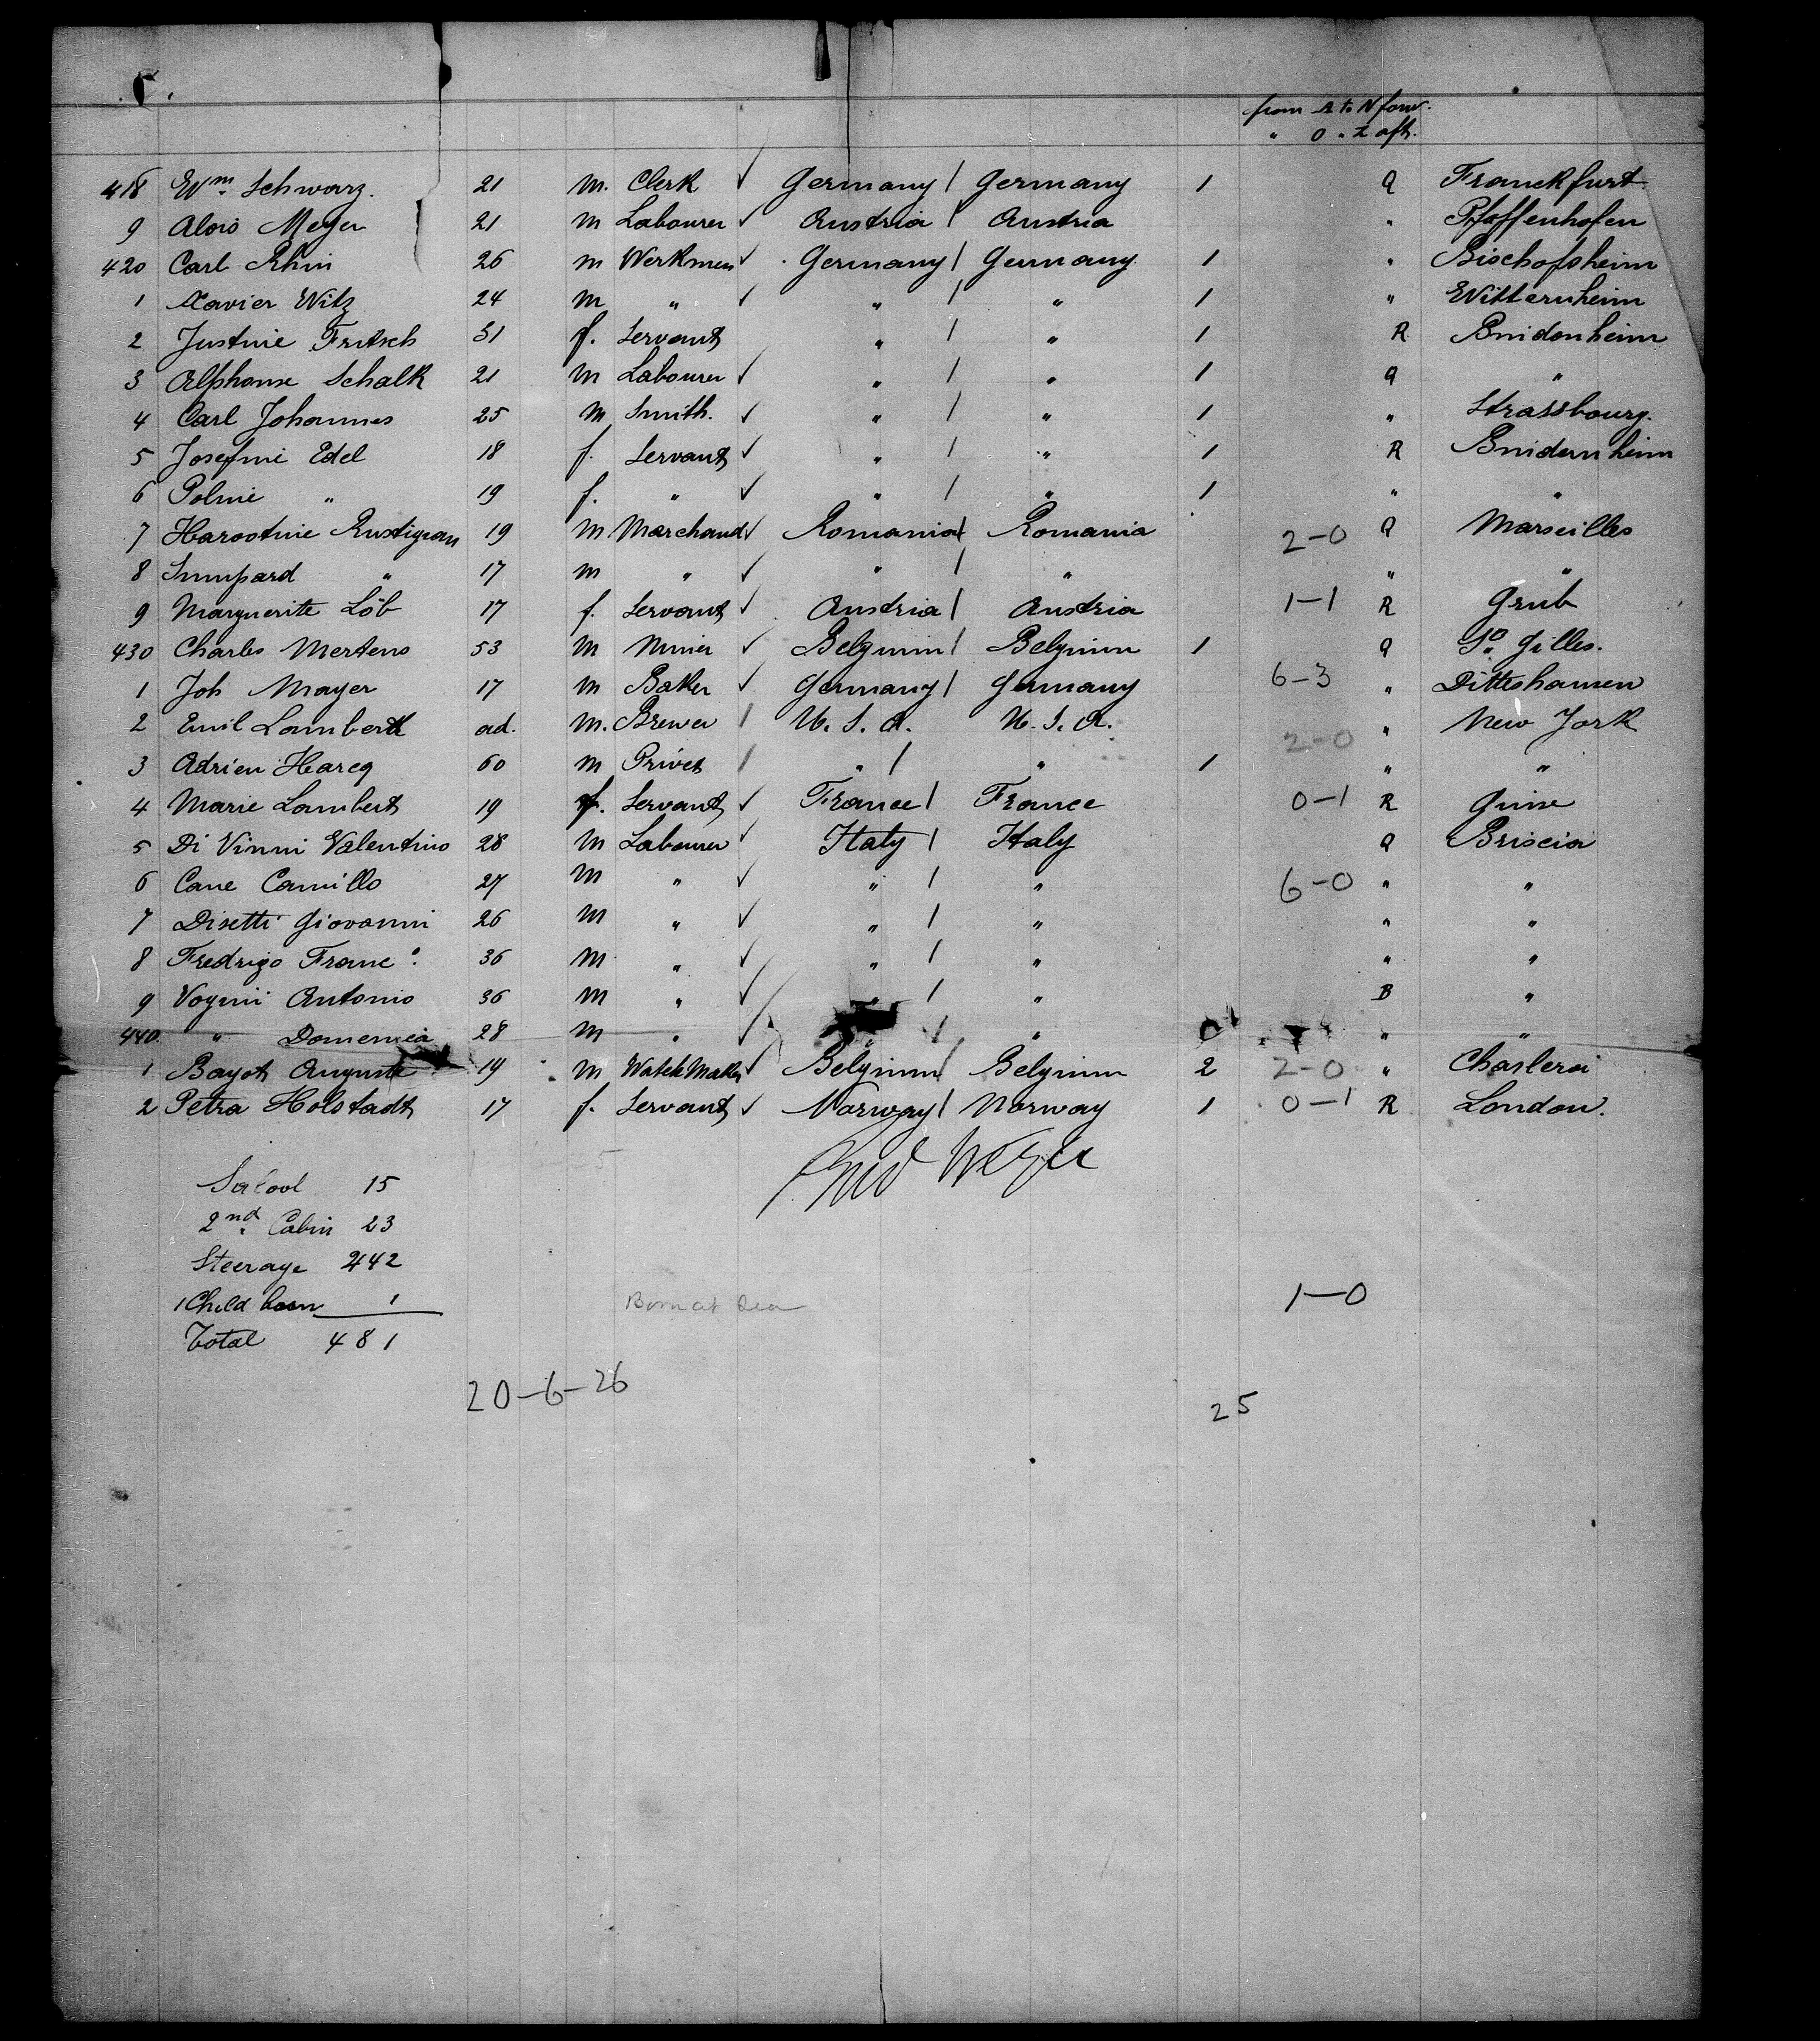 from A to N forw.
" O " Z aft.
418 Wm. Schwarz. 21 m. Clerk ✓ Germany / Germany 1 Q Franckfurt
9 Alois Meyer 21 m Labourer ✓ Austria / Austria " Pfaffenhofen
420 Carl Rhin 26 m Werkmen ✓ Germany / Germany 1 " Bischofsheim
1 Xavier Witz 24 m " ✓ " / " 1 " Witternheim
2 Justine Fritsch 31 f. Servant " / " 1 R
3 Alphonse Schalk 21 m Labourer ✓ " / " 1 Q "
4 Carl Johannes 25 m Smith. ✓ " / " 1 " Strassbourg.
5 Josefine Edel 18 f. Servant ✓ " / " 1 R
6 Poline " 19 f. " ✓ " / " 1 " "
7 Harootnie Rustigian 19 m Marchand ✓ Romania / Romania 2-0 Q Marseilles
8 " 17 m " ✓ " / " " "
9 Marguerite Löb 17 f. Servant ✓ Austria / Austria 1-1 R Grub
430 Charles Mertens 53 m Minier ✓ Belgium / Belgium 1 Q Gilles.
1 Joh Mayer 17 m Baker ✓ Germany / Germany 6-3 " Ditteshausen
2 Emil Lambert ad. m. Brewer / U. S. A. U. S. A. " New York
3 Adrien Harcq 60 m Privet / " / " 1 2-0 " "
4 Marie Lambert 19 f. Servant ✓ France / France 0-1 R Guise
5 Di Vinni Valentino 28 m Labourer ✓ Italy / Italy Q Briscia
6 Cane Camillo 27 m " ✓ " / " 6-0 " "
7 Disetti Giovanni 26 m " ✓ " / " " "
8 Fredrigo Franco. 36 m " ✓ " / " " "
9 Antonio 36 m " ✓ " / " B "
440 " Domenica 28 m " ✓ " / " " "
1 Bayot Auguste 19 m Watch Maker ✓ Belgium / Belgium 2 2-0 " Charleroi
2 Petra Holstadt 17 f. Servant ✓ Norway / Norway 1 0-1 R London.
Saloon 15
2nd. Cabin 23
Steerage 442
1 Child born 1 Born at Sea 1-0
Total 481
20-6-26
25